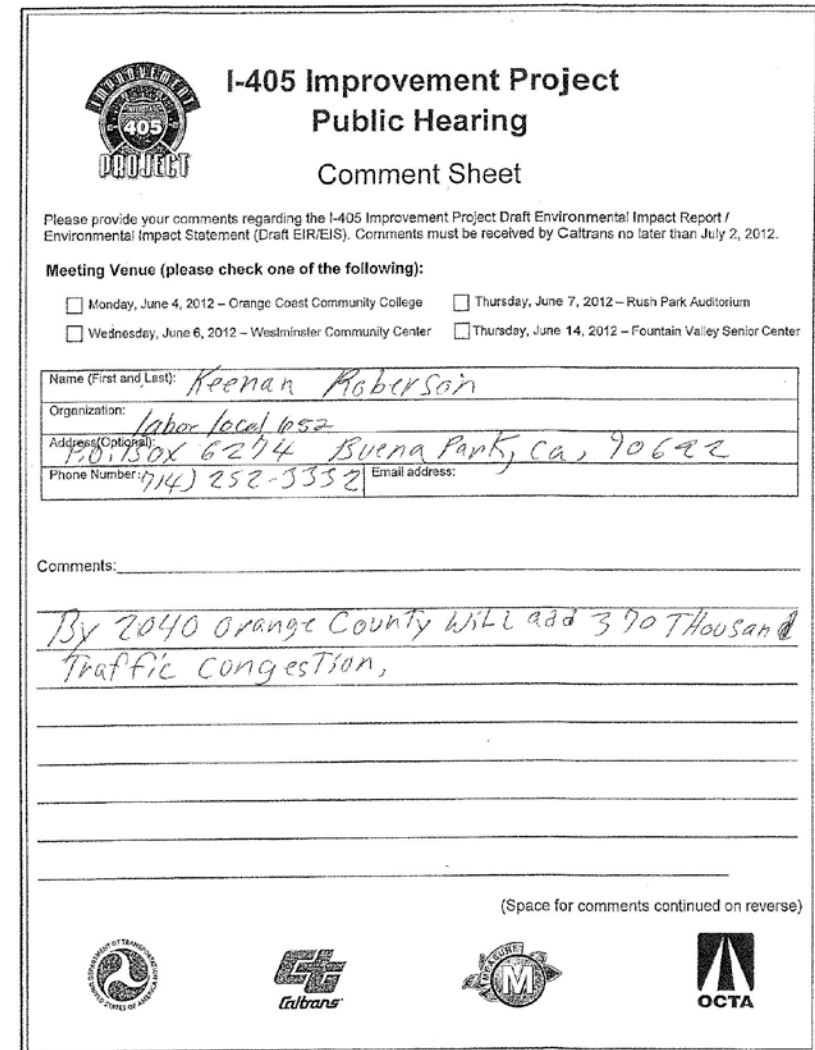 IMPROVEMENT
INTERSTATE
405
PROJECT
I-405 Improvement Project
Public Hearing
Comment Sheet
Please provide your comments regarding the I-405 Improvement Project Draft Environmental Impact Report /
Environmental Impact Statement (Draft EIR/EIS). Comments must be received by Caltrans no later than July 2, 2012.
Meeting Venue (please check one of the following):
Monday, June 4, 2012 – Orange Coast Community College
Thursday, June 7, 2012 – Rush Park Auditorium
Wednesday, June 6, 2012 – Westminster Community Center
Thursday, June 14, 2012 – Fountain Valley Senior Center
Name (First and Last): Keenan Roberson
Organization: labor local 652
Address(Optional): P.O. Box 6274 Buena Park, Ca, 90622
Phone Number: 714) 252-3332 Email address:
Comments:
By 2040 Orange County Will add 370 THousand
Traffic congesTion,
(Space for comments continued on reverse)
DEPARTMENT OF TRANSPORTATION
UNITED STATES OF AMERICA
Caltrans
MEASURE
M
OCTA